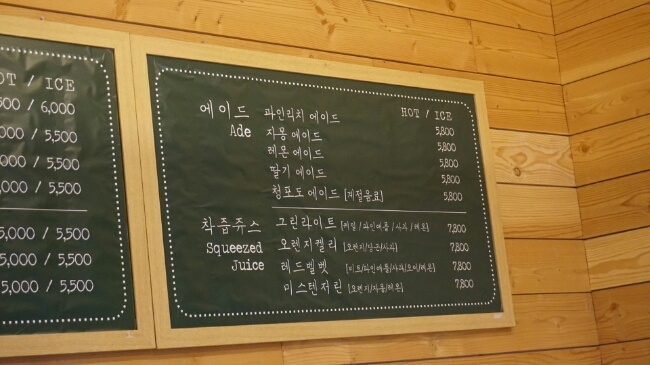 HOT / ICE
500 / 6,000
000 / 5,500
000 / 5,500
000 / 5,500
5,000 / 5,500
5,000 / 5,500
5,000 / 5,500
HOT / ICE
에이드 파인리치 에이드 5,800
Ade 자몽 에이드 5,800
레몬 에이드 5,800
딸기 에이드 5,800
청포도 에이드 [계절음료] 5,800
착즙쥬스 그린라이트 [케일/파인애플/사과/레몬] 7,800
Squeezed 오렌지캘리 [오렌지/당근/사과] 7,800
Juice 레드벨벳 [비트/파인애플/사과/오이/레몬] 7,800
미스텐저린 [오렌지/자몽/레몬] 7,800